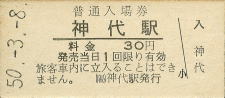 50.-3.-8.
普通入場券
神代駅
料金 30円
発売当日1回限り有効
旅客車内に立入ることはでき
ません。 神代駅発行
入
神代
小